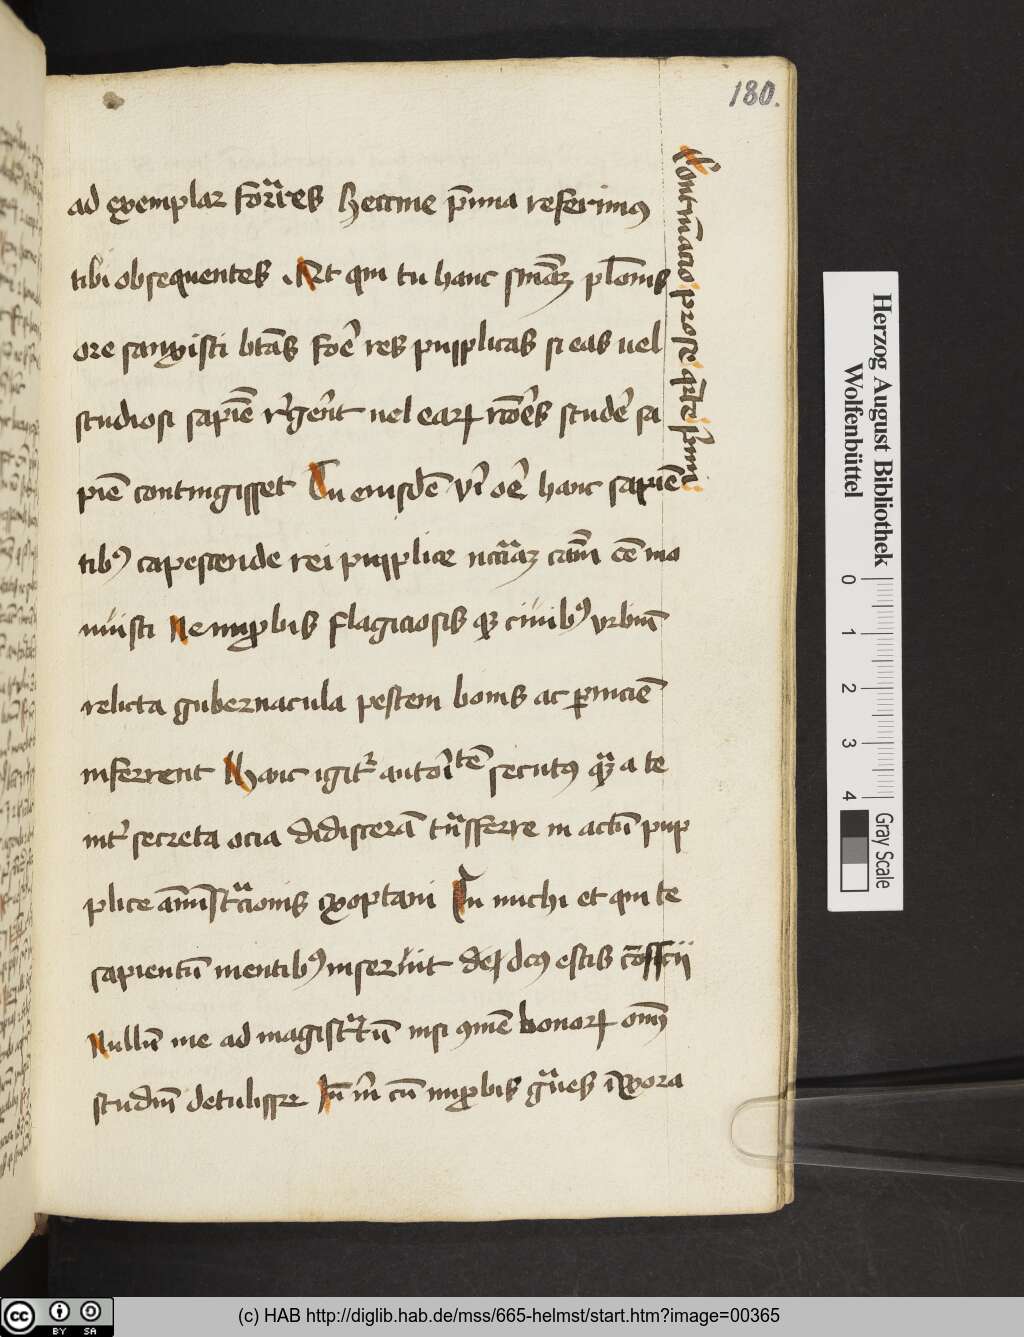 180.
ad exemplar formares heccine premia referimus
tibi obsequentes . At qui tu hanc smam platonis
ore sanxisti btas fore res pupplicas si eas uel
studiosi sapie regerent uel earum rcores studere sa
pie contingisset Tu eiusde viri ore hanc sapien
tibus capescende rei pupplice ncaria cam ee mo
nuisti Ne improbis flagiciosis que ciuibus vrbium
relicta gubernacula pestem bonis ac pernicie
inferrent Hanc igitur autoritate secutus que a te
inter secreta ocia didicera transferre in actu pup
plice aministracionis exoptaui Tu michi et qui te
sapientu mentibus inseruit deus
Nullu me ad magistratu nisi comune bonorum omnium
studiu detulisse
Continuacio prose quarte primi
Herzog August Bibliothek
Wolfenbüttel
0 1 2 3 4
Gray Scale
cc BY SA
(c) HAB http://diglib.hab.de/mss/665-helmst/start.htm?image=00365